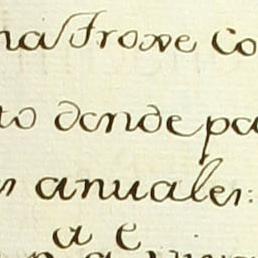 na Troxe co
to donde pa
s anuales:
a e